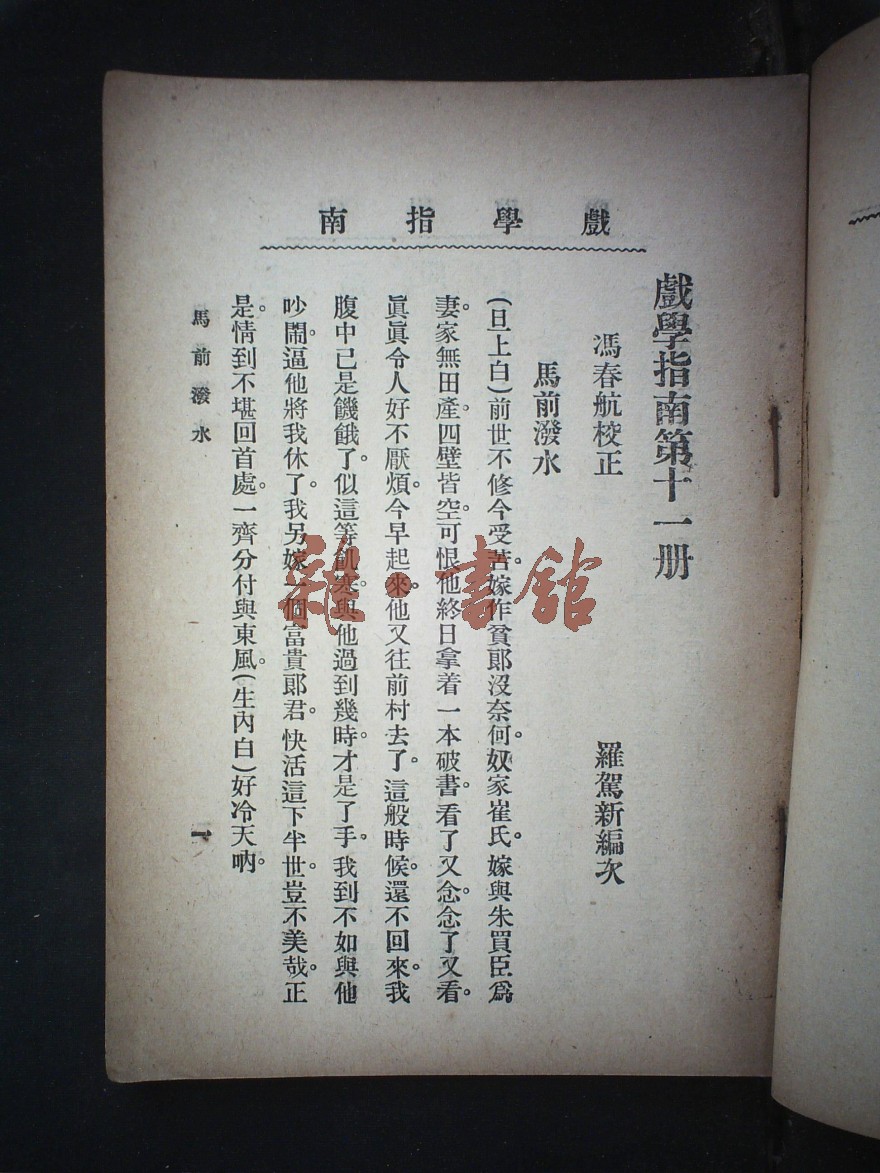 戲學指南
戲學指南第十一册
馮春航校正
羅駕新編次
馬前潑水
(旦上白)前世不修今受苦。嫁作貧郎沒奈何。奴家崔氏。嫁與朱買臣爲
妻。家無田產。四壁皆空。可恨他終日拿着一本破書。看了又念。念了又看。
眞眞令人好不厭煩。今早起來。他又往前村去了。這般時候。還不回來。我
腹中已是饑餓了。似這等飢寒。與他過到幾時。才是了手。我到不如與他
吵鬧。逼他將我休了。我另嫁一個富貴郎君。快活這下半世。豈不美哉。正
是。情到不堪回首處。一齊分付與東風。(生內白)好冷天吶。
馬前潑水
一
雜·書館